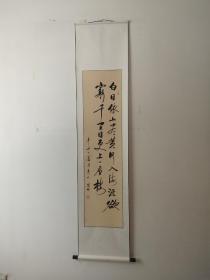 白日依山尽黄河入海流欲
窮千里目更上一层楼